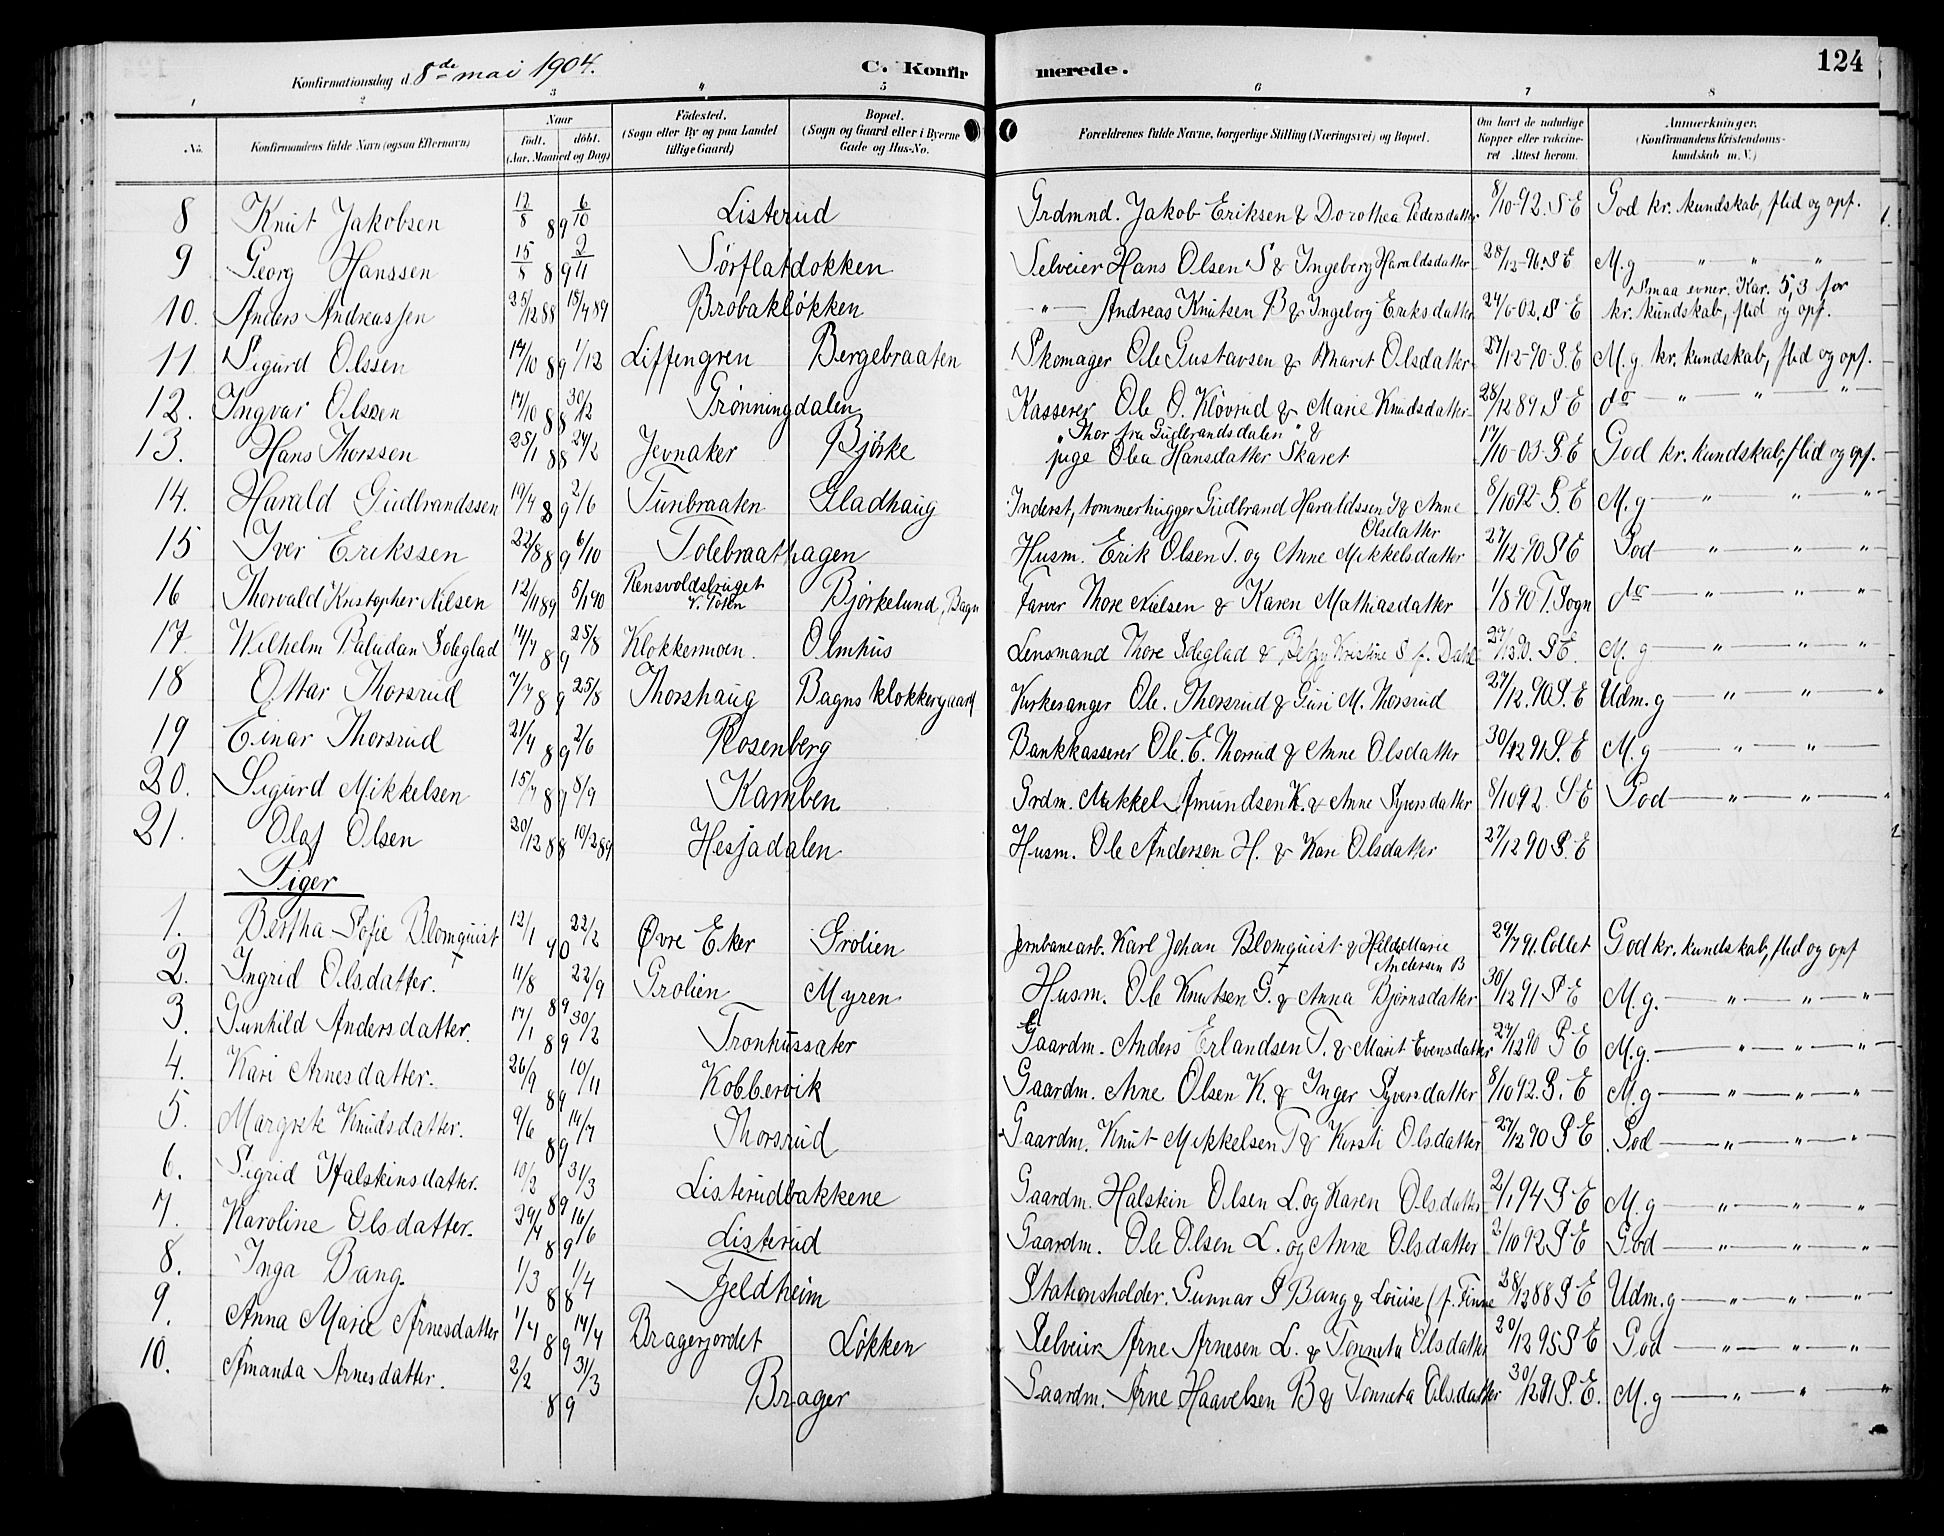 Konfirmationsdag d. 8de mai 1904.
C. Konfirmerede.
124
1 2 3 4 5 6 7 8
No.
Konfirmandens fulde Navn (ogsaa Efternavn)
Naar
født. døbt.
(Aar, Maaned og Dag)
Fødested.
(Sogn eller By og paa Landet
tillige Gaard)
Bopæl.
(Sogn og Gaard eller i Byerne
Gade og Hus-No.
Forældrenes fulde Navne, borgerlige Stilling (Næringsvei) og Bopæl.
Om havt de naturlige
Kopper eller vakcine-
ret Attest herom.
Anmerkninger.
(Konfirmandens Kristendoms-
kundskab m. V.)
8 Knut Jakobsen 12/8 89 6/10 Listerud Grdmnd. Jakob Eriksen & Dorothea Pedersdatter 8/10-92. S E God kr. kundskab, flid og opf.
9 Georg Hanssen 15/8 89 2/11 Sørflatdokken Selveier Hans Olsen S & Ingeberg Haraldsdatter 28/12-96. S E M.g — " — " — "
10. Anders Andreassen 25/12 88 18/4 89 Brøbakløkken — " — Andreas Knutsen B & Ingeborg Eriksdatter 24/6-02. S E Smaa evner. Kar. 5,3 for
kr. kundskab, flid og opf.
11 Sigurd Olssen 14/10 89 1/12 Liffengren Bergebraaten Skomager Ole Gustavsen & Maret Olsdatter 27/12-90-S.E M.g. kr. kundskab, flid og opf.
12. Ingvar Olssen 14/10 88 30/12 Grønningdalen Kasserer Ole O. Kløvrud & Marie Knudsdatter 28/12 89 S E do — " — " — "
13. Hans Thorssen 25/1 88 24/2 Jevnaker Bjørke "Thor fra Gudbrandsdalen" &
pige Olea Hansdatter Skaret 17/10-03-S E God kr. kundskab, flid og opf.
14. Harald Gudbrandssen 19/4 89 2/6 Tunbraaten Gladhaug Inderst, tømmerhugger Gudbrand Haraldssen T & Anne
Olsdatter 8/10 92-S. E M.g — " — " — "
15 Iver Erikssen 22/8 89 6/10 Tolebraathagen Husm. Erik Olsen T. og Anne Mikkelsdatter 27/12-90 S E God — " — " — "
16 Thorvald Kristopher Nilsen 12/11 89 5/1 90 Rensvoldsbruget
V. Toten Bjørkelund, Bagn Farver Thore Nielsen & Karen Mathiasdatter 1/8 90 T. Sogn do — " — " — "
17. Wilhelm Paludan Soleglad 14/7 89 25/8 Klokkermoen. Olmhus Lensmand Thore Soleglad & Betzy Kristine S f. Dahl S E. M.g — " — " — "
18 Ottar Thorsrud 7/7 89 25/8 Thorshaug Bagns klokkergaard Kirkesanger Ole. Thorsrud & Guri M. Thorsrud 27/12.90 S. E Udm.g — " — " — "
19 Einar Thorsrud 21/4 89 2/6 Rosenberg Bankkasserer Ole. E. Thorsrud & Anne Olsdatter 30/12 91 S. E M.g — " — " — "
20. Sigurd Mikkelsen 15/7 89 8/9 Kamben Grdm. Mikkel Amundsen K. & Anne Syversdatter 8/10 92. S E God — " — " — "
21. Olaf Olsen 20/12 88 10/2 89 Hesjadalen Husm. Ole Andersen H. & Kari Olsdatter 27/12 90 S. E
Piger
1. Bertha Sofie Blomquist 12/1 90 22/2 Øvre Eker Grolien Jernbanearb. Karl Johan Blomquist & Hilda Marie
Andersen B 29/7 91. Collet God kr. kundskab, flid og opf
2. Ingrid Olsdatter. 11/8 89 22/9 Grolien Myren Husm. Ole Knutsen G. & Anna Bjørnsdatter 30/12 91 S E M.g. — " — " — "
3. Gunhild Andersdatter. 17/1 89 30/2 Tronhussater Gaardm. Anders Erlandsen T. & Marit Evensdatter 27/12 90 S E M.g. — " — " — "
4. Kari Arnesdatter. 26/9 89 10/11 Kobbervik Gaardm. Arne Olsen K. & Inger Syversdatter 8/10 92. S. E M.g — " — " — "
5. Margrete Knudsdatter. 9/6 89 14/7 Thorsrud Gaardm. Knut Mikkelsen T & Kirsti Olsdatter 27/12 90 S E God — " — " — "
6. Sigrid Halstensdatter. 10/2 89 31/3 Listerudbakkene Gaardm. Halstein Olsen L. og Karen Olsdatter 2/1 94 S E M.g — " — " — "
7. Karoline Olsdatter. 29/4 89 16/6 Listerud Gaardm. Ole Olsen L. og Anne Olsdatter 2/10 92 S E God — " — " — "
8. Inga Bang. 1/3 88 1/4 Fjeldheim Stationsholder. Gunnar S Bang & Louise (f. Finne 28/12 88 S E Udm.g — " — " — "
9. Anna Marie Arnesdatter 1/4 89 14/4 Bragerjordet Løkken Selveier Arne Arnesen L. & Tonneta Olsdatter 20/12 95 S E God — " — " — "
10. Amanda Arnesdatter. 2/2 89 31/3 Brager Gaardm. Arne Haavelsen B & Tonneta Olsdatter 30/12 91 S. E. M.g — " — " — "